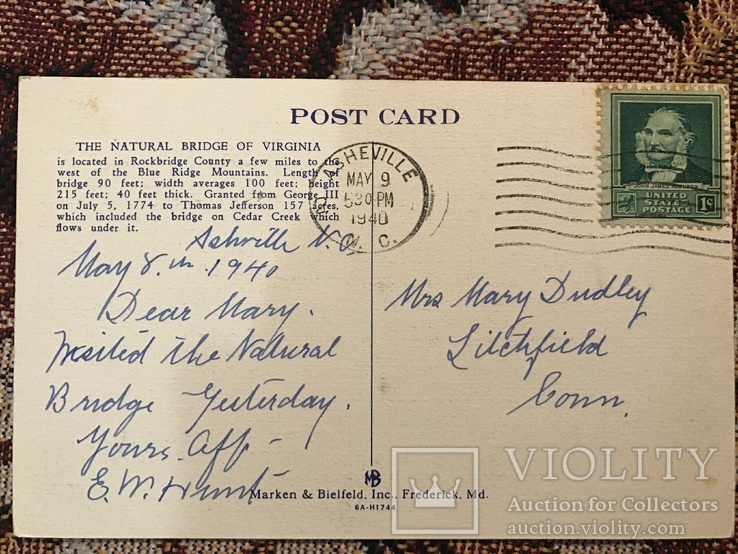 POST CARD
THE NATURAL BRIDGE OF VIRGINIA
is located in Rockbridge County a few miles to the
west of the Blue Ridge Mountains. Length of
bridge 90 feet; width averages 100 feet; height
215 feet; 40 feet thick. Granted from George III
on July 5, 1774 to Thomas Jefferson 157 acres,
which included the bridge on Cedar Creek which
flows under it.
ASHEVILLE
MAY 9
530 PM
1940
N. C.
UNITED
STATES
POSTAGE
1¢
Ashville N.C.
May 8th 1940
Dear Mary.
Visited the Natural
Bridge Yesterday.
Yours Aff-
E. W. Hunt
Mrs Mary Dudley
Litchfield
Conn.
MB
Marken & Bielfeld, Inc., Frederick, Md.
6A-H1744
VIOLITY
Auction for Collectors
auction.violity.com